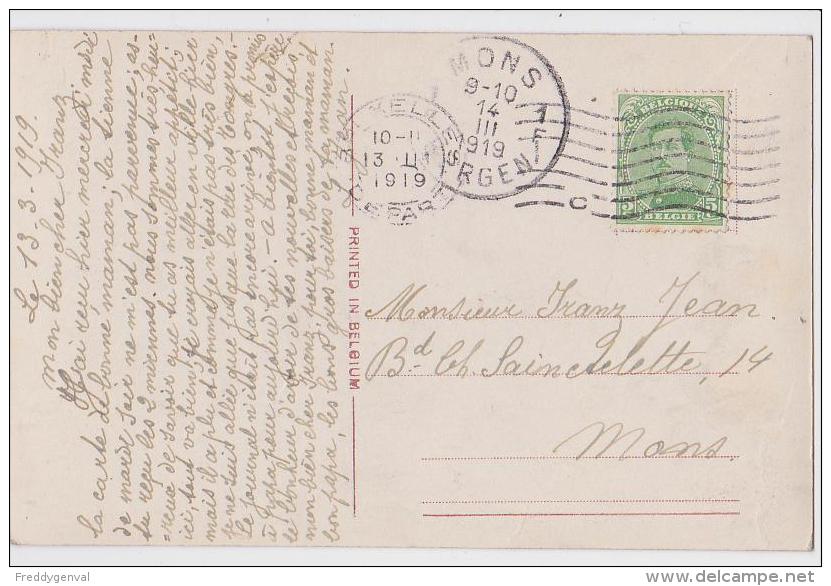 Le 13-3-1919.
Mon bien cher Franz
J'ai reçu hier mercredi midi
la carte de bonne maman, la tienne
de mardi soir ne m'est pas parvenue; as-
tu reçu les 2 miennes. nous sommes très heu-
reux de savoir que tu as meilleur appétit;
ici, tout va bien, je croyais aller en ville hier
mais il a plu et comme je n'étais pas très bien,
je ne suis allée que jusque la rd de Tongres.-
Le journal n'était pas encore arrivé, on l'a promis
à papa pour aujourd'hui. - A bientôt j'espère
le bonheur d'avoir de tes nouvelles et reçois,
mon bien cher Franz, pour toi, bonne maman et
bon papa, les bons gros baisers de ta maman.
Jean.
PRINTED IN BELGIUM
XELLE
10-11
13 III
1919
DEPART
MONS
9-10
14
III
1919
BERGEN
BELGIQUE
5 5
BELGIE
Monsieur Franz Jean.
Bd Ch. Sainctelette, 14
Mons.
Freddygenval
www.delcampe.net